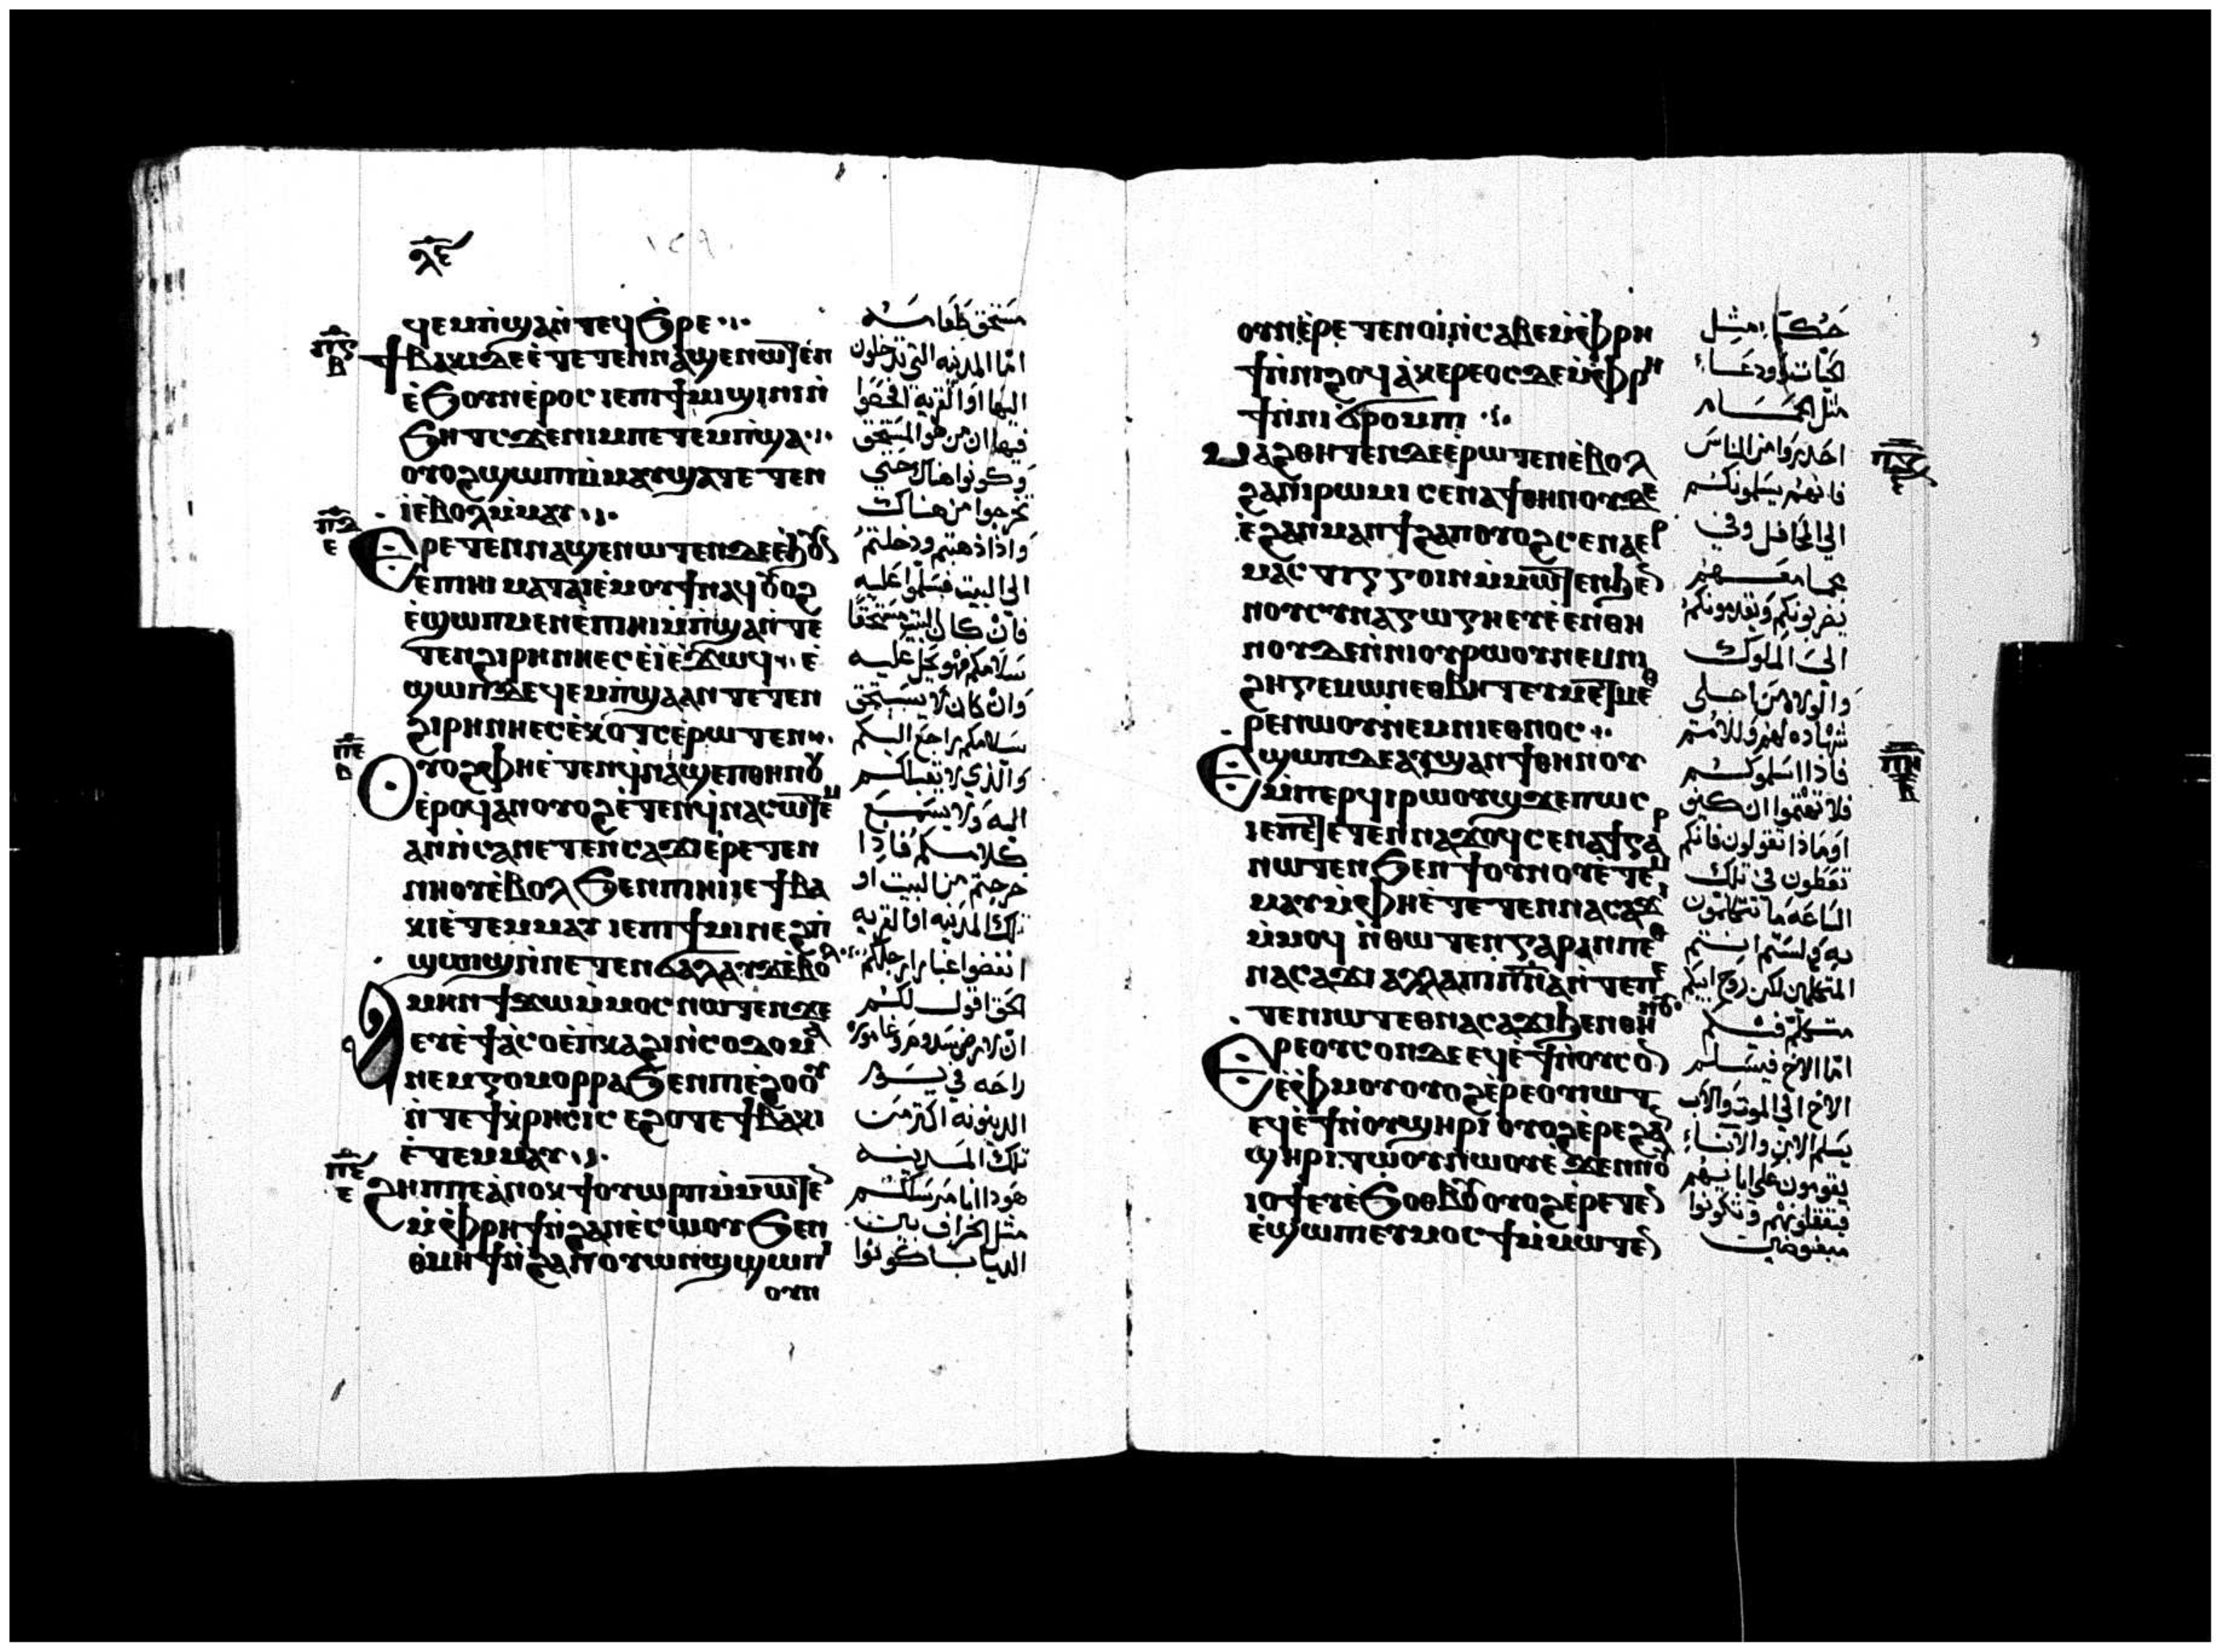 ⲗ̅ⲉ̅
١٢٩
ϥⲉⲙⲡ̀ϣⲁⲛ̀ⲧⲉϥϧ̀ⲣⲉ
ϯⲃⲁⲕⲓⲇⲉⲉ̀ⲧⲉⲧⲉⲛⲛⲁϣⲉⲛⲱⲧⲉⲛ
ⲉ̀ϧⲟⲩⲛⲉ̀ⲣⲟⲥⲓⲉⲡⲓϯⲙⲓϣⲓⲛⲓⲛ̀
ϧⲏⲧⲥϫⲉⲛⲓⲙⲡⲉⲧⲉⲙⲡ̀ϣⲁ
ⲟⲩⲟϩϣⲱⲡⲓⲙ̀ⲙⲁⲩϣⲁⲧⲉⲧⲉⲛ
ⲓⲉ̀ⲃⲟⲗⲙ̀ⲙⲁⲩ
ⲉⲣⲉⲧⲉⲛⲛⲁϣⲉⲛⲱⲧⲉⲛⲇⲉⲉ̀ϧⲟⲩⲛ
ⲉ̀ⲡⲓⲏⲓⲙⲁⲧⲁⲓⲉ̀ⲙⲟⲩϯⲛⲁϥ
ⲉ̀ϣⲱⲡⲙⲉⲛⲉ̀ⲡⲓⲏⲓⲙ̀ⲡ̀ϣⲁⲛ̀ⲧⲉ
ⲧⲉⲛϩⲓⲣⲏⲛⲏⲉⲥⲉ̀ⲓ̀ⲉ̀ϫⲱϥ ⲉ̀
ϣⲱⲡⲇⲉϥⲉⲙⲡ̀ϣⲁⲁⲛⲧⲉⲧⲉⲛ
ϩⲓⲣⲏⲛⲏⲉⲥⲉ̀ⲕⲟⲧⲥⲉ̀ⲣⲱⲧⲉⲛ
ⲟⲩⲟϩⲫⲏⲉ̀ⲧⲉⲛϥ̀ⲛⲁϣⲉⲡⲑⲏⲛⲟⲩ
ⲉ̀ⲣⲟϥⲁⲛⲟⲩⲟϩⲉ̀ⲧⲉⲛϥ̀ⲛⲁⲥⲱⲧⲉⲙ
ⲁⲛⲛ̀ⲥⲁⲛⲉⲧⲉⲛⲥⲁϫⲓⲉ̀ⲣⲉⲧⲉⲛ
ⲛⲏⲟⲩⲉ̀ⲃⲟⲗϧⲉⲛⲡⲓⲏⲓⲓⲉϯⲃⲁ
ⲕⲓⲉ̀ⲧⲉⲙⲙⲁⲩⲓⲉⲡⲓϯⲙⲓⲛⲉϩⲡ̀
ϣⲱⲓϣⲛ̀ⲛⲉⲧⲉⲛϭⲁⲗⲁⲩϫⲉ̀ⲃⲟⲗ
ⲁⲙⲏⲛϯϫⲱⲙ̀ⲙⲟⲥⲛⲱⲧⲉⲛϫⲉ
ⲉⲩⲉ̀ϯⲁ̀ⲥⲟⲉ̀ⲡ̀ⲕⲁϩⲓⲛ̀ⲥⲟⲇⲟⲙⲁ
ⲛⲉⲙⲅⲟⲙⲟⲣⲣⲁϧⲉⲛⲡⲓⲉ̀ϩⲟⲟⲩ
ⲛ̀ⲧⲉϯⲕ̀ⲣⲏⲥⲓⲥⲉϩⲟⲧⲉϯⲃⲁⲕⲓ
ⲉ̀ⲧⲉⲙⲙⲁⲩ
ϩⲏⲡⲡⲉⲁ̀ⲛⲟⲕϯⲟⲩⲱⲣⲡⲙ̀ⲙⲱⲧⲉⲛ
ⲙ̀ⲫ̀ⲣⲏϯⲛ̀ϩⲁⲛⲉ̀ⲥⲱⲟⲩϧⲉⲛ
ⲑ̀ⲙⲏϯⲛ̀ϩⲁⲛⲟⲩⲱⲛϣϣⲱⲡⲓ
ⲟⲩⲛ
مستحق طعامه
اما المدينه التي تدخلون
اليها او القريه افحصوا
فيها ان من هو المستحق
وكونوا هناك حتي
تخرجوا من هناك
واذا ذهبتم ودخلتم
الي البيت فسلموا عليه
فان كان البيت مستحقا
سلامكم فهو يحل عليه
وان كان لا يستحق
سلامكم يراجع اليكم
والذي لا يقبلكم
اليه ولا يسمع
كلامكم فاذا
خرجتم من البيت او
تلك المدينه او القريه
انفضوا غبار ارجلكم
الحق اقول لكم
ان لارض سدوم وغامورا
راحه في يوم
الدينونه اكثر من
تلك المدينه
هودا انا مرسلكم
مثل الخراف بين
الدياب كونوا
ⲟⲩⲛⲉ̀ⲣⲉⲧⲉⲛⲟⲓⲛ̀ⲥⲁⲃⲉⲙ̀ⲫ̀ⲣⲏ
ϯⲛ̀ⲛⲓϩⲟϥⲁ̀ⲕⲉⲣⲉⲟⲥⲇⲉⲙ̀ⲫ̀ⲣⲏ
ϯⲛ̀ⲛⲓϭⲣⲟⲙⲡⲓ
ⲙⲁ̀ϩⲑⲏⲧⲉⲛⲇⲉⲉ̀ⲣⲱⲧⲉⲛⲉ̀ⲃⲟⲗ
ϩⲁⲛⲓⲣⲱⲙⲓⲥⲉⲛⲁϯⲑⲏⲛⲟⲩⲅⲁⲣ
ⲉ̀ϩⲁⲛⲙⲁⲛϯϩⲁⲡⲟⲩⲟϩⲥⲉⲛⲁⲉⲣ
ⲙⲁⲥⲧⲓⲅⲅⲟⲓⲛⲙ̀ⲙⲱⲧⲉⲛϧⲉⲛ
ⲛⲟⲩⲥⲩⲛⲁⲅⲱⲅⲏⲉⲩⲉ̀ⲉⲛⲑⲏ
ⲛⲟⲩⲇⲉⲛ̀ⲛⲓⲟⲩⲣⲱⲟⲩⲛⲉⲙⲛⲓ
ϩⲏⲅⲉⲙⲱⲛⲉⲑⲃⲏⲧⲉⲩⲙⲉⲧⲙⲉⲑ
ⲣⲉⲛⲱⲟⲩⲛⲉⲙⲛⲓⲉⲑⲛⲟⲥ
ⲉϣⲱⲡⲇⲉⲁⲩϣⲁⲛϯⲑⲏⲛⲟⲩ
ⲙ̀ⲡⲉⲣϥⲓⲣⲱⲟⲩϣϫⲉⲡⲱⲥ
ⲓⲉⲡⲉⲧⲉⲧⲉⲛⲛⲁϫⲟϥⲥⲉⲛⲁϯⲅⲁⲣ
ⲛⲱⲧⲉⲛϧⲉⲛϯⲟⲩⲛⲟⲩⲉ̀ⲧⲉⲙ
ⲙⲁⲩⲙ̀ⲫⲏⲉ̀ⲧⲉⲧⲉⲛⲛⲁⲥⲁϫⲓ
ⲙ̀ⲙⲟϥ ⲛ̀ⲑⲱⲧⲉⲛⲅⲁⲣⲁⲛⲡⲉⲑ
ⲛⲁⲥⲁϫⲓⲁⲗⲗⲁⲡⲓⲡⲛ̅ⲁ̅ⲛ̀ⲧⲉⲡⲉ
ⲧⲉⲛⲓⲱⲧⲉⲑⲛⲁⲥⲁϫⲓϧⲉⲛⲑⲏⲛⲟⲩ
ⲉⲣⲉⲟⲩⲥⲟⲛⲇⲉⲉϥⲉ̀ϯⲛ̀ⲟⲩⲥⲟⲛ
ⲉ̀ⲫ̀ⲙⲟⲩⲟⲩⲟϩⲉ̀ⲣⲉⲟⲩⲓⲱⲧ
ⲉϥⲉ̀ϯⲛ̀ⲟⲩϣⲏⲣⲓⲟⲩⲟϩⲉ̀ⲣⲉϩⲁⲛ
ϣⲏⲣⲓⲧⲱⲟⲩⲛⲱⲟⲩⲉ̀ϫⲉⲛⲛⲟⲩ
ⲓⲟϯⲉⲩⲉ̀ϧⲟⲑⲃⲟⲩⲟⲩⲟϩⲉ̀ⲣⲉⲧⲉⲛ
ⲉ̀ϣⲱⲡⲓⲉⲩⲙⲟⲥϯⲙ̀ⲙⲱⲧⲉⲛ
حكما مثل
الحيات وودعاء
مثل الحمام
احذروا من الناس
فانهم يسلمونكم
الي المحافل وفي
مجامعهم
يضربونكم ويقدمونكم
الي الملوك
والولاه من اجلي
شهاده لهم وللامم
فاذا اسلموكم
فلا تهتموا ان كيف
او ماذا تقولون فانكم
تعطون في تلك
الساعه ما تتكلمون
به ولستم انتم
المتكلمين لكن روح ابيكم
متكلم فيكم
اما الاخ فيسلم
الاخ الي الموت والاب
يسلم الابن والابناء
يقومون علي ابائهم
فيقتلونهم وتكونوا
مبغوضين